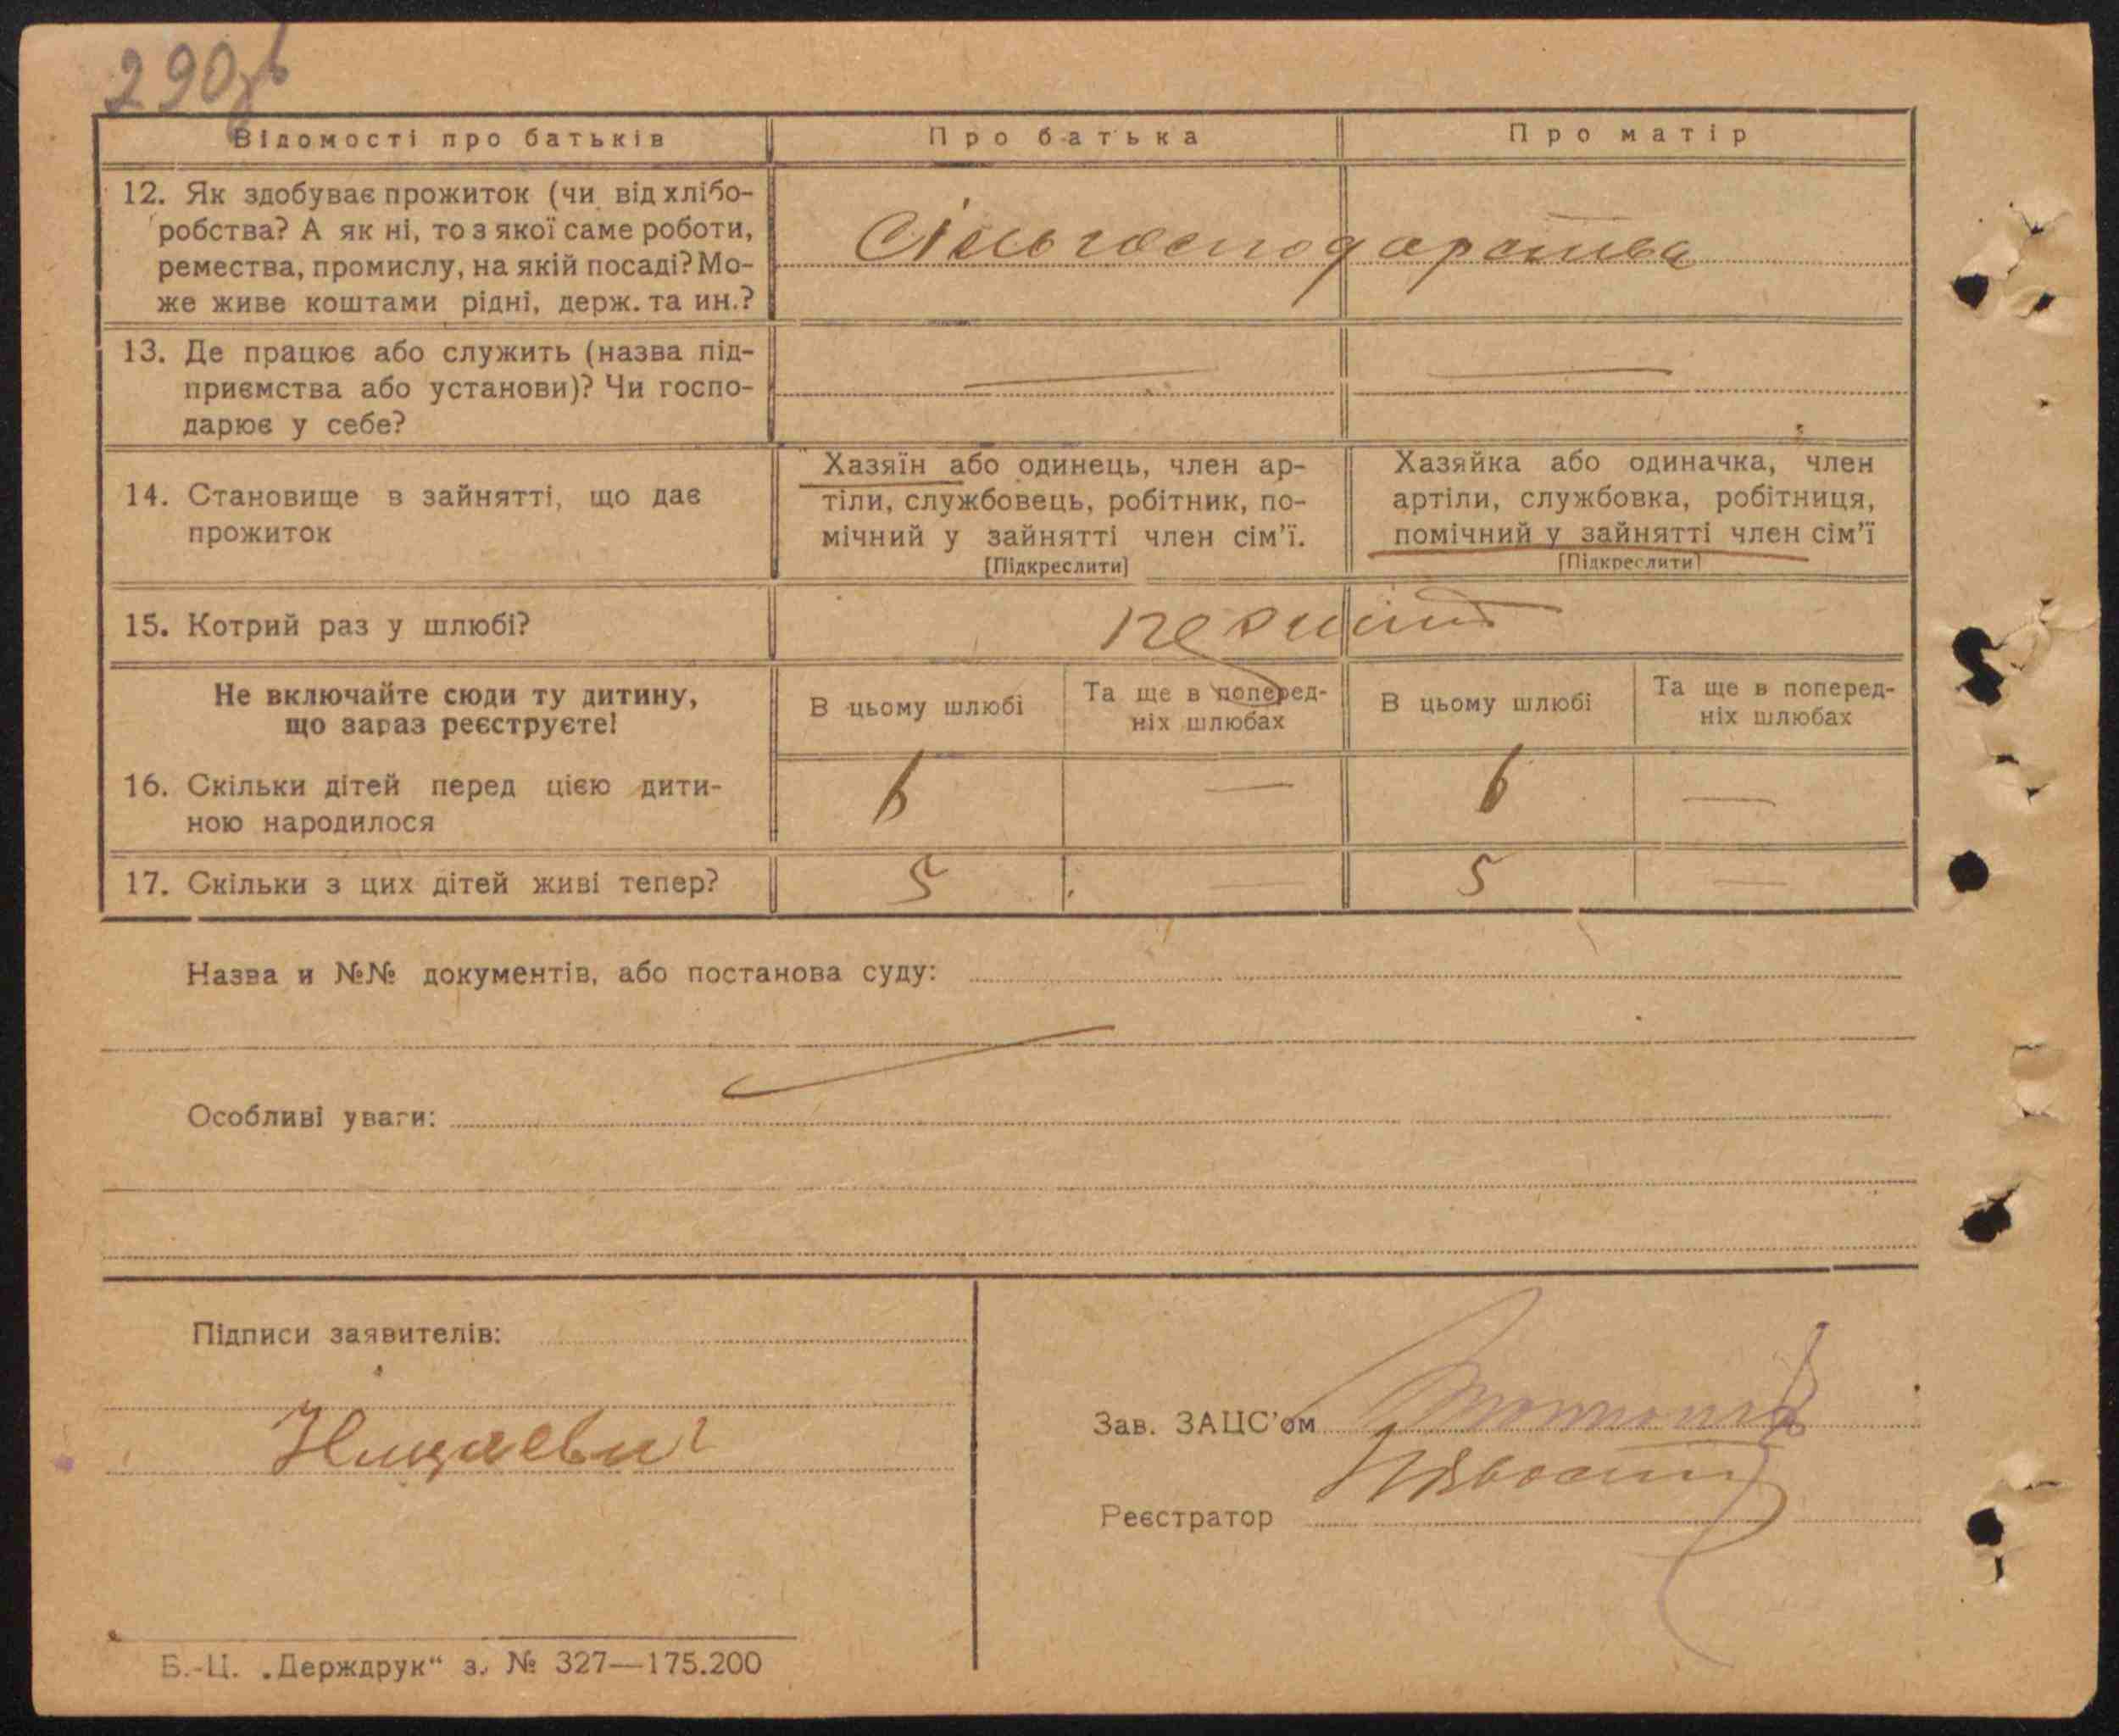 290зв
Відомості про батьків
Про батька
Про матір
12. Як здобуває прожиток (чи від хлібо-
робства? А як ні, то з якої саме роботи,
ремества, промислу, на якій посаді? Мо-
же живе коштами рідні, держ. та ин.?
Сільгосподарства
13. Де працює або служить (назва під-
приємства або установи)? Чи госпо-
дарює у себе?
14. Становище в зайнятті, що дає
прожиток
Хазяїн або одинець, член ар-
тіли, службовець, робітник, по-
мічний у зайнятті член сім'ї.
[Підкреслити]
Хазяйка або одиначка, член
артіли, службовка, робітниця,
помічний у зайнятті член сім'ї
[Підкреслити]
15. Котрий раз у шлюбі?
Не включайте сюди ту дитину,
що зараз реєструєте!
В цьому шлюбі
Та ще в поперед-
ніх шлюбах
В цьому шлюбі
Та ще в поперед-
ніх шлюбах
16. Скільки дітей перед цією дити-
ною народилося
6 — 6 —
17. Скільки з цих дітей живі тепер?
5 — 5 —
Назва и №№ документів, або постанова суду:
Особливі уваги:
Підписи заявителів:
Зав. ЗАЦС'ом
Реєстратор
Б.-Ц. „Держдрук“ з. № 327—175.200